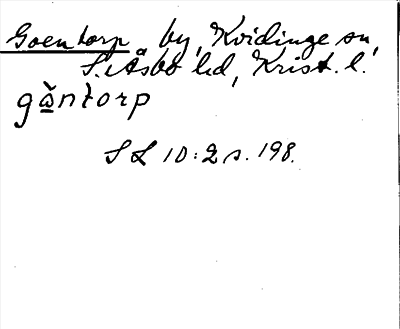 Goentorp by, Kvidinge sn,
S. Åsbo hd, Krist. l.
gǻntorp
S L 10:2 s. 198.